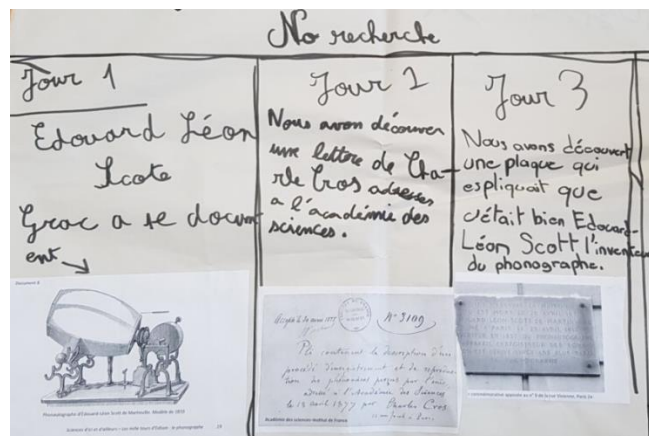 No recherche
Jour 1
Edouard Léon
Scote
Grac a se docum
ent
Document 3
Phonautographe d'Edouard-Léon Scott de Martinville. Modèle de 1859
Sciences d'ici et d'ailleurs : les mille tours d'Edison : le phonographe
Jour 2
Nous avon découver
une lettere de Cha-
rle Cros adresses
a l'académie des
sciences.
N° 3109
Pli contenant la description d'un
procédé d'enregistrement et de reproduc-
tion des phénomènes perçus par l'ouïe,
adressé à l'Académie des Sciences
le 18 avril 1877 par Charles Cros
Académie des sciences-Institut de France
Jour 3
Nous avons découvert
une plaque qui
espliquait que
c'était bien Edouard-
Léon Scott l'inventeu
du phonographe.